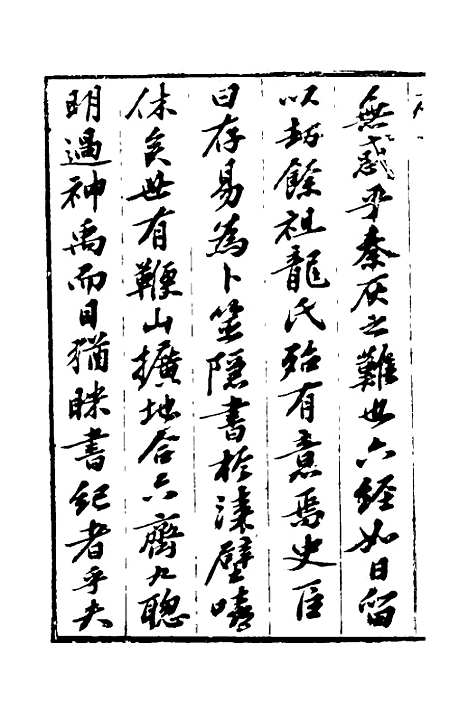 無惑乎秦灰之難也六經如日留
以却餘祖龍氏殆有意焉史臣
曰存易為卜筮隱書於漆壁嘻
休矣世有鞭山擴地合六齊九聰
明過神禹而目猶眯書紀者乎夫